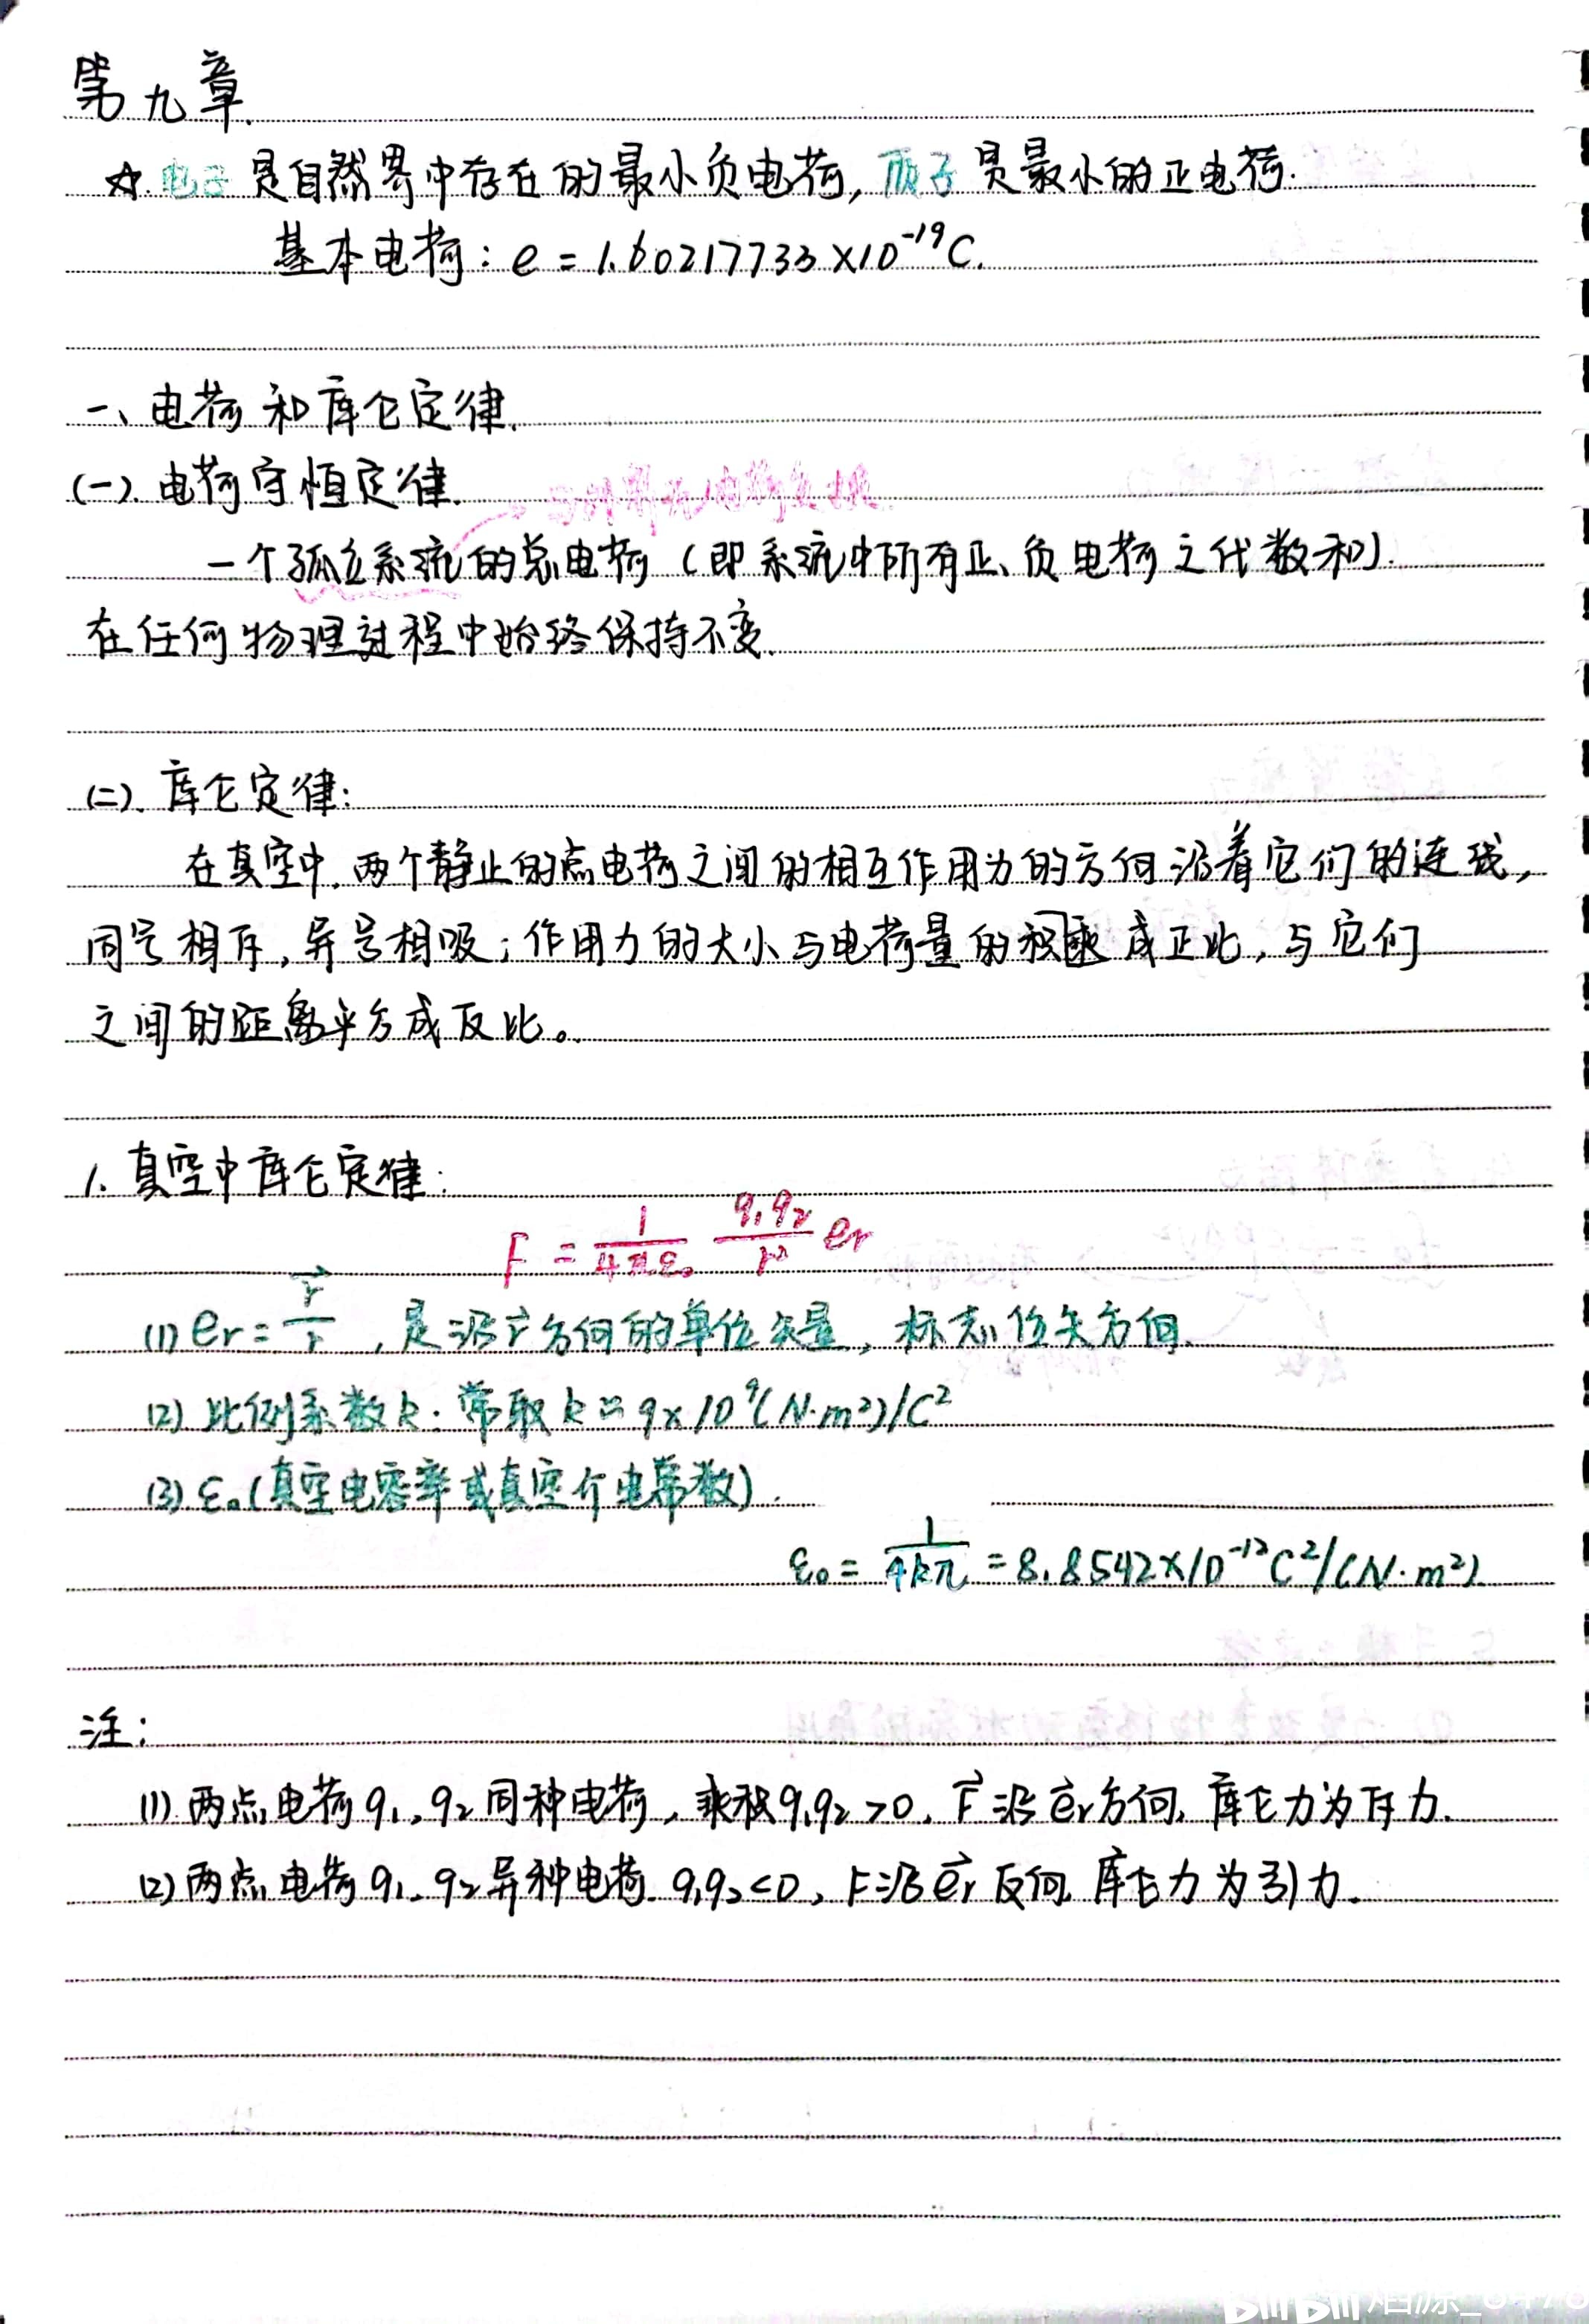 第九章.
☆.电子是自然界中存在的最小负电荷,质子是最小的正电荷.
基本电荷:e=1.60217733×10⁻¹⁹C.
一、电荷和库仑定律.
(一).电荷守恒定律.
与外界无电荷交换.
一个孤立系统的总电荷(即系统中所有正、负电荷之代数和).
在任何物理过程中始终保持不变.
(二).库仑定律:
在真空中,两个静止的点电荷之间的相互作用力的方向沿着它们的连线,
同号相斥,异号相吸;作用力的大小与电荷量的积乘成正比,与它们
之间的距离平方成反比。
1.真空中库仑定律:
F = 1/4πε₀ q₁q₂/r² er
(1) er = r⃗/r ,是沿r⃗方向的单位矢量,标志位矢方向.
(2)比例系数k:常取k≈9×10⁹(N·m²)/C²
(3) ε₀(真空电容率或真空介电常数).
ε₀ = 1/4kπ = 8.8542×10⁻¹²C²/(N·m²)
注:
(1)两点电荷q₁、q₂同种电荷,乘积q₁q₂>0,F⃗沿e⃗r方向,库仑力为斥力.
(2)两点电荷q₁、q₂异种电荷.q₁q₂<0,F沿e⃗r反向,库仑力为引力.
bilibili